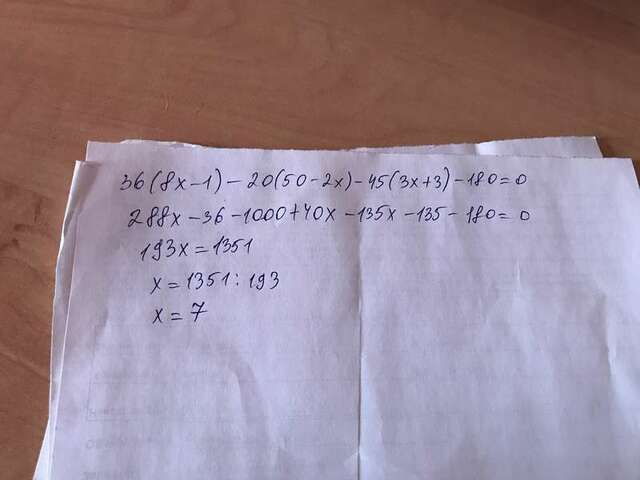 36(8x-1)-20(50-2x)-45(3x+3)-180=0
288x-36-1000+40x-135x-135-180=0
193x=1351
x=1351:193
x=7